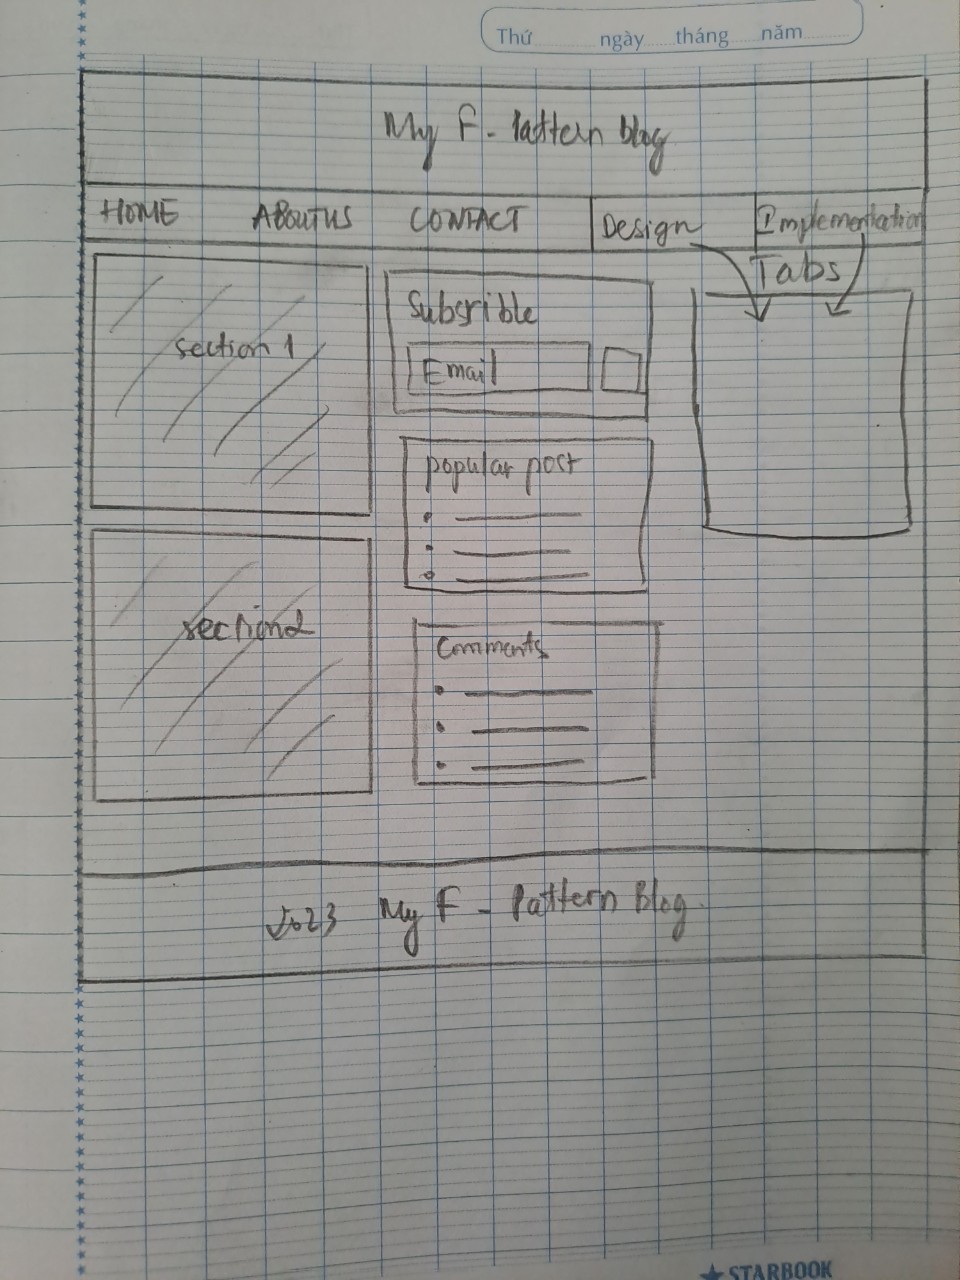 Thứ ngày tháng năm
My F - Pattern blog
HOME ABOUTUS CONTACT Design Implementation
Tabs
section 1
Subsrible
Email
popular post
section2
Comments
2023 My F - Pattern Blog
STARBOOK